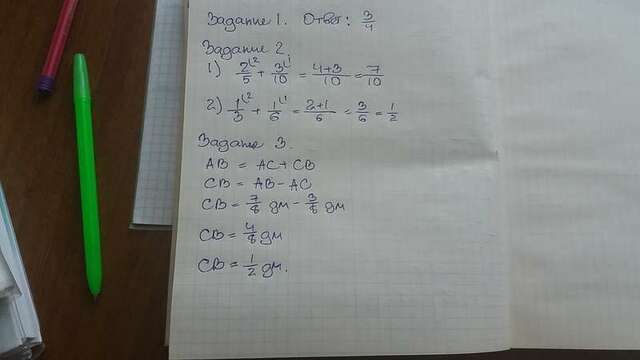 Задание 1. Ответ: 3/4
Задание 2.
1) 2/5 + 3/10 = 4+3/10 = 7/10
2) 1/3 + 1/6 = 2+1/6 = 3/6 = 1/2
Задание 3.
AB = AC + CB
CB = AB - AC
CB = 7/8 дм - 3/8 дм
CB = 4/8 дм
CB = 1/2 дм.